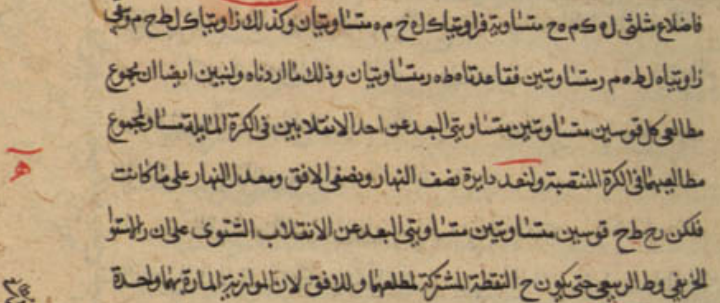 فاضلاع مثلثى ل ه ك م ه ح متساوية فزاويتا ك ل ه ح م ه متساويتان وكذلك زاويتا ك ل ط ح م وتبقى
زاويتا ه ل ط ه م ر متساويتين فقاعدتا ه ط ه ر متساويتان وذلك ما اردناه ولنبين ايضا ان مجموع
مطالعى كل قوسين متساويتين متساويتى البعد عن احد الانقلابين فى الكرة المايلة مساو لمجموع
مطالعيهما فى الكرة المنتصبة ولنعد دايرة نصف النهار ونصفى الافق ومعدل النهار على ما كانت
ه
فلكن رح طح قوسين متساويتين متساويتى البعد عن الانقلاب الشتوى على ان ر الاستوا
الخريفى و ط الربيعى حتى يكون ح النقطة المشتركة لمطلعهما وللافق لان الموازية المارة بهما واحدة